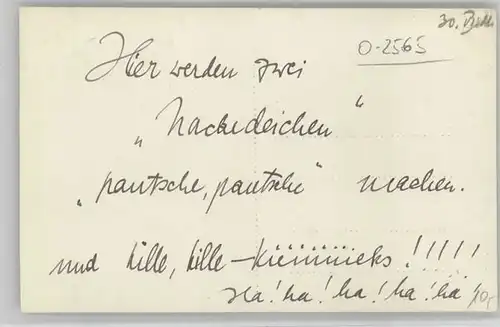 30.
O-2565
Hier werden zwei
„Nackedeichen“
„pantsche, pantsche“ machen.
und kille, kille – küüüüüicks!!!!!
Ha! ha! ha! ha! ha!
10,-